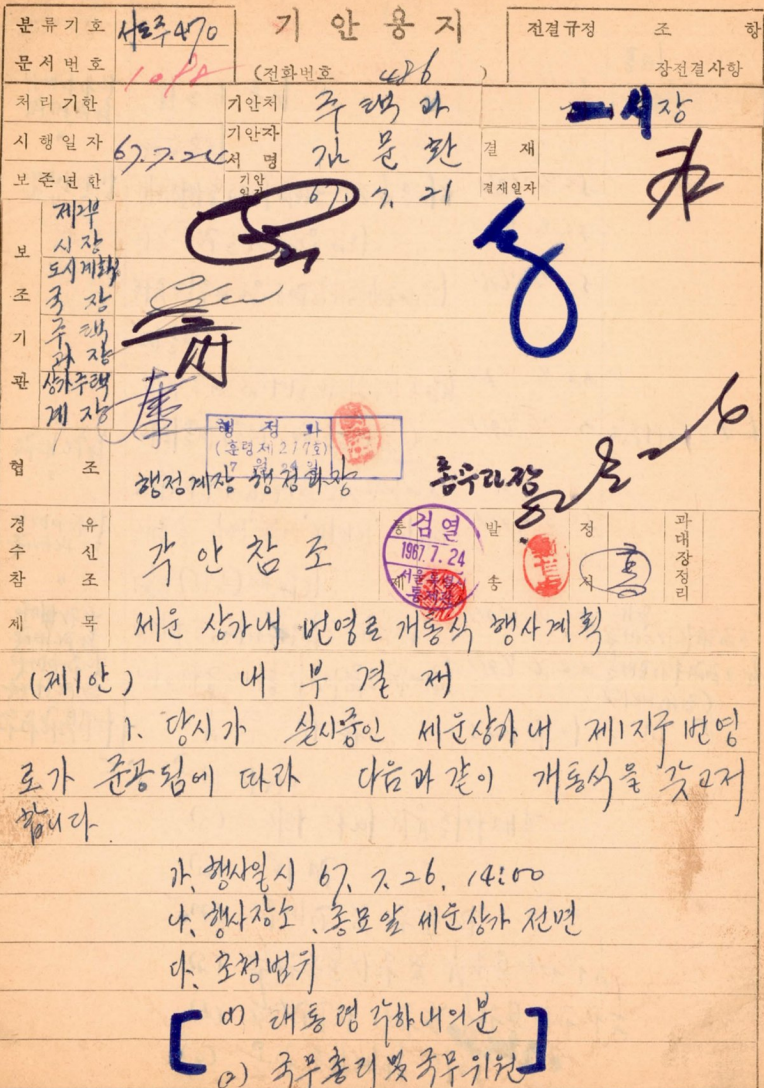 분류기호 서도주 470
문서번호 1088
기안용지
(전화번호 486)
전결규정 조 항
장전결사항
처리기한
시행일자 67.7.24
보존년한
기안처 주택과
기안자 서명 김문환
기안일자 67. 7. 21
시장
결재
결재일자
보조기관
제2부시장
도시계획국장
주택과장
상가주택계장
행정과
(훈령제217호)
7월24일
협조
행정계장 행정과장
통무과장
경유
수신
참조
각안참조
통제
검열
1967.7.24
발송
정서
과대장정리
제목 세운 상가내 번영로 개통식 행사계획
(제1안) 내부결재
1. 당시가 실시중인 세운상가내 제1지구 번영
로가 준공됨에 따라 다음과 같이 개통식을 갖고저
합니다.
가. 행사일시 67. 7. 26. 14:00
나. 행사장소. 종묘앞 세운상가 전면
다. 초청범위
(1) 대통령 각하내외분
(2) 국무총리 및 국무위원